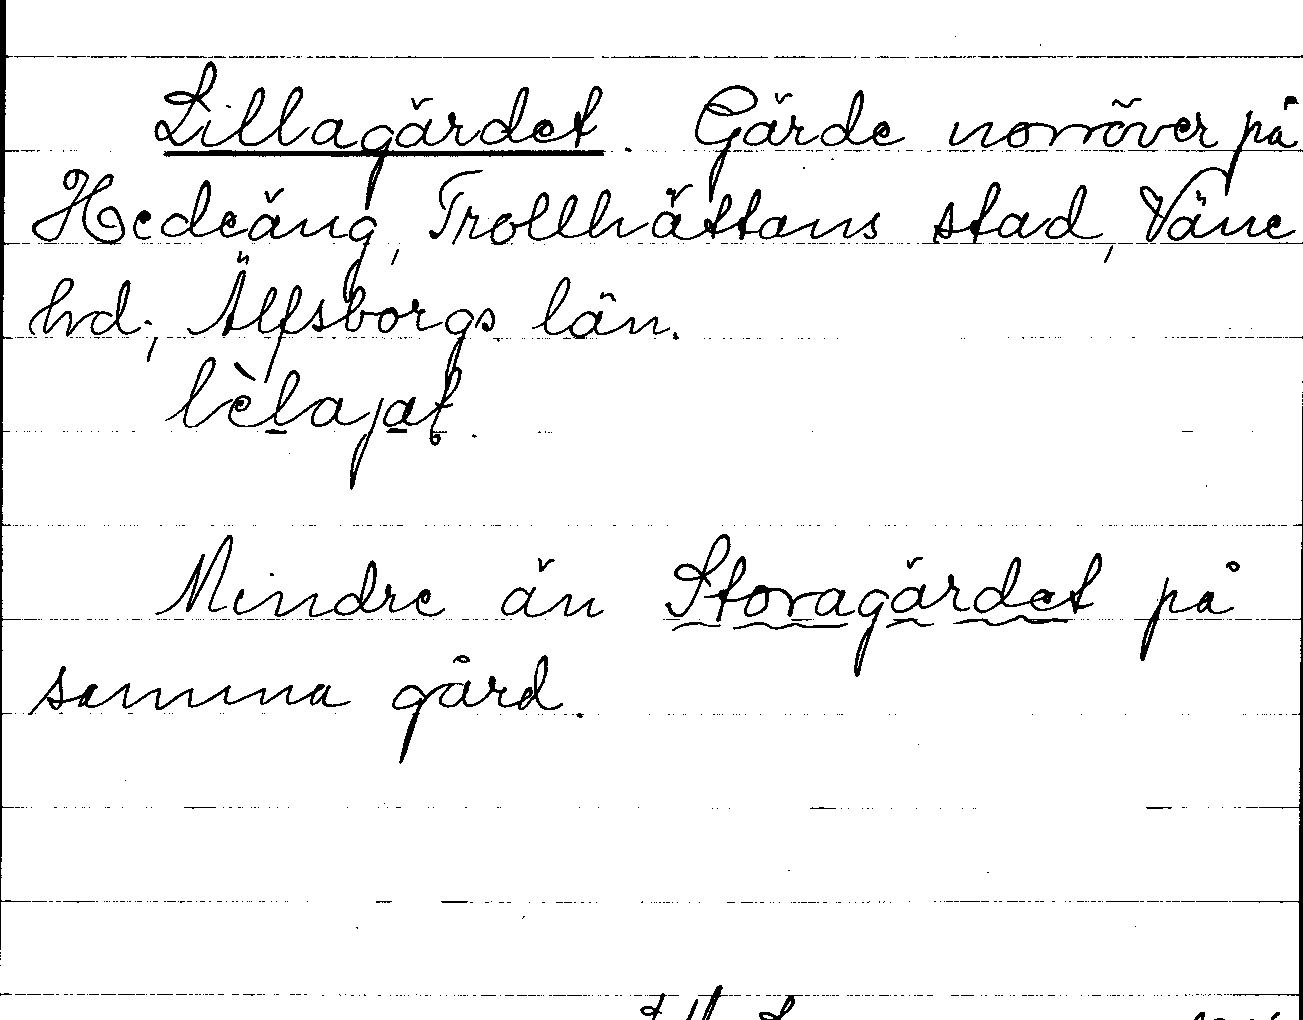 Lillagärdet. Gärde norröver på
Hedeäng, Trollhättans stad, Väne
hd; Älfsborgs län.
lèlajat.
Mindre än Storagärdet på
samma gård.